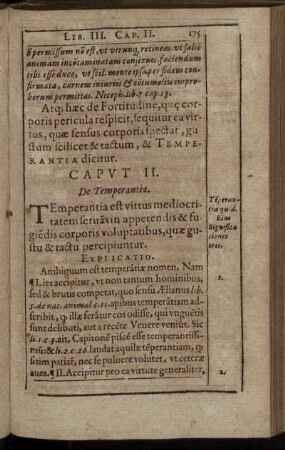 LIB. III. CAP. II. 175
si permissum nō est, vt virunq; retineas, vt saltē
animam incōtaminatam conserues: faciendum
tibi esse duco, vt scil. mente ipsa per fidem con-
firmata, carnem iniuriis & cōtumeliis impro-
borum permittas. Niceph. lib. 7. cap. 13.
Atq; hæc de Fortitudine, quę cor-
poris pericula respicit, sequitur ea vir
tus, quæ sensus corporis spectat, gu
stum scilicet & tactum, & TEMPE-
RANTIA dicitur.
CAPVT II.
De Temperantia.
TEmperantia est virtus mediocri-
tatem seruās in appetendis & fu
giēdis corporis voluptatibus, quæ gu
stu & tactu percipiuntur.
Tēperan-
tia quid.
Eius
significa
tiones
EXPLICATIO.
Ambiguum est temperātiæ nomen. Nam
¶ I. ita accipitur, vt non tantum hominibus,
1.
sed & brutis competat, quo sensu Ælianus lib.
5. de nat. animal. c. 11. apibus temperātiam ad-
scribit, φ illæ ferātur eos odisse, qui vnguētis
sunt delibuti, aut a recēte Venere veniūt. Sic
li. 1. c. 3. ait, Capitonē piscē esse temperātissi-
mū: & li. 2. c. 26. laudat aquilæ tēperantiam, φ
sitim patiāt̄, nec se puluere volutet, vt cetеræ
aues. ¶ II. Accipitur pro ea virtute generaliter,
2.